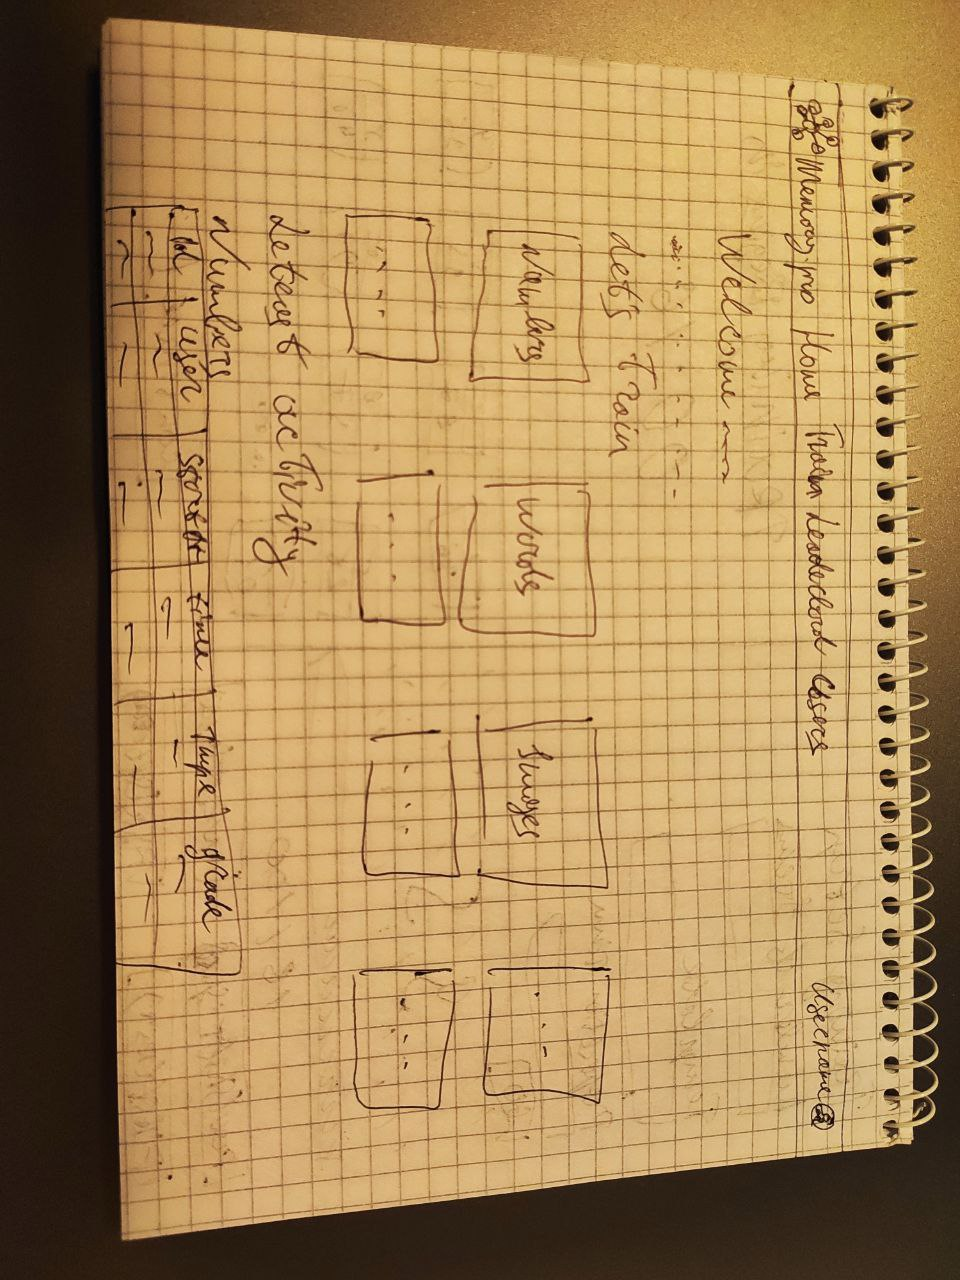 Memory.pro Home Train Leaderbord Users
Username
Welcome
Let's train
Numbers
Words
Images
Latest activity
Numbers
user started time Type grade